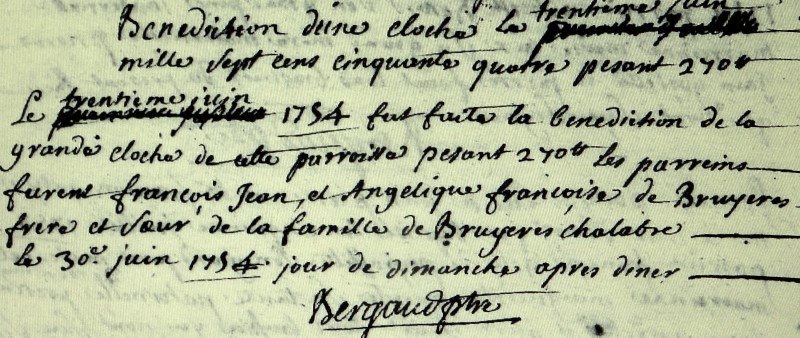 trentieme juin
Benediction deune cloche le
mille sept cens cinquante quatre pesant 270tt
trentieme juin
Le 1754 fut faite la benediction de la
grande cloche de cette parroisse pesant 270tt les parreins
furent françois Jean, et Angelique françoise de Bruyeres
frere et sœur, de la famille de Bruyeres, chalabre
le 30e. juin 1754. jour de dimanche apres diner
Bergaud ptre